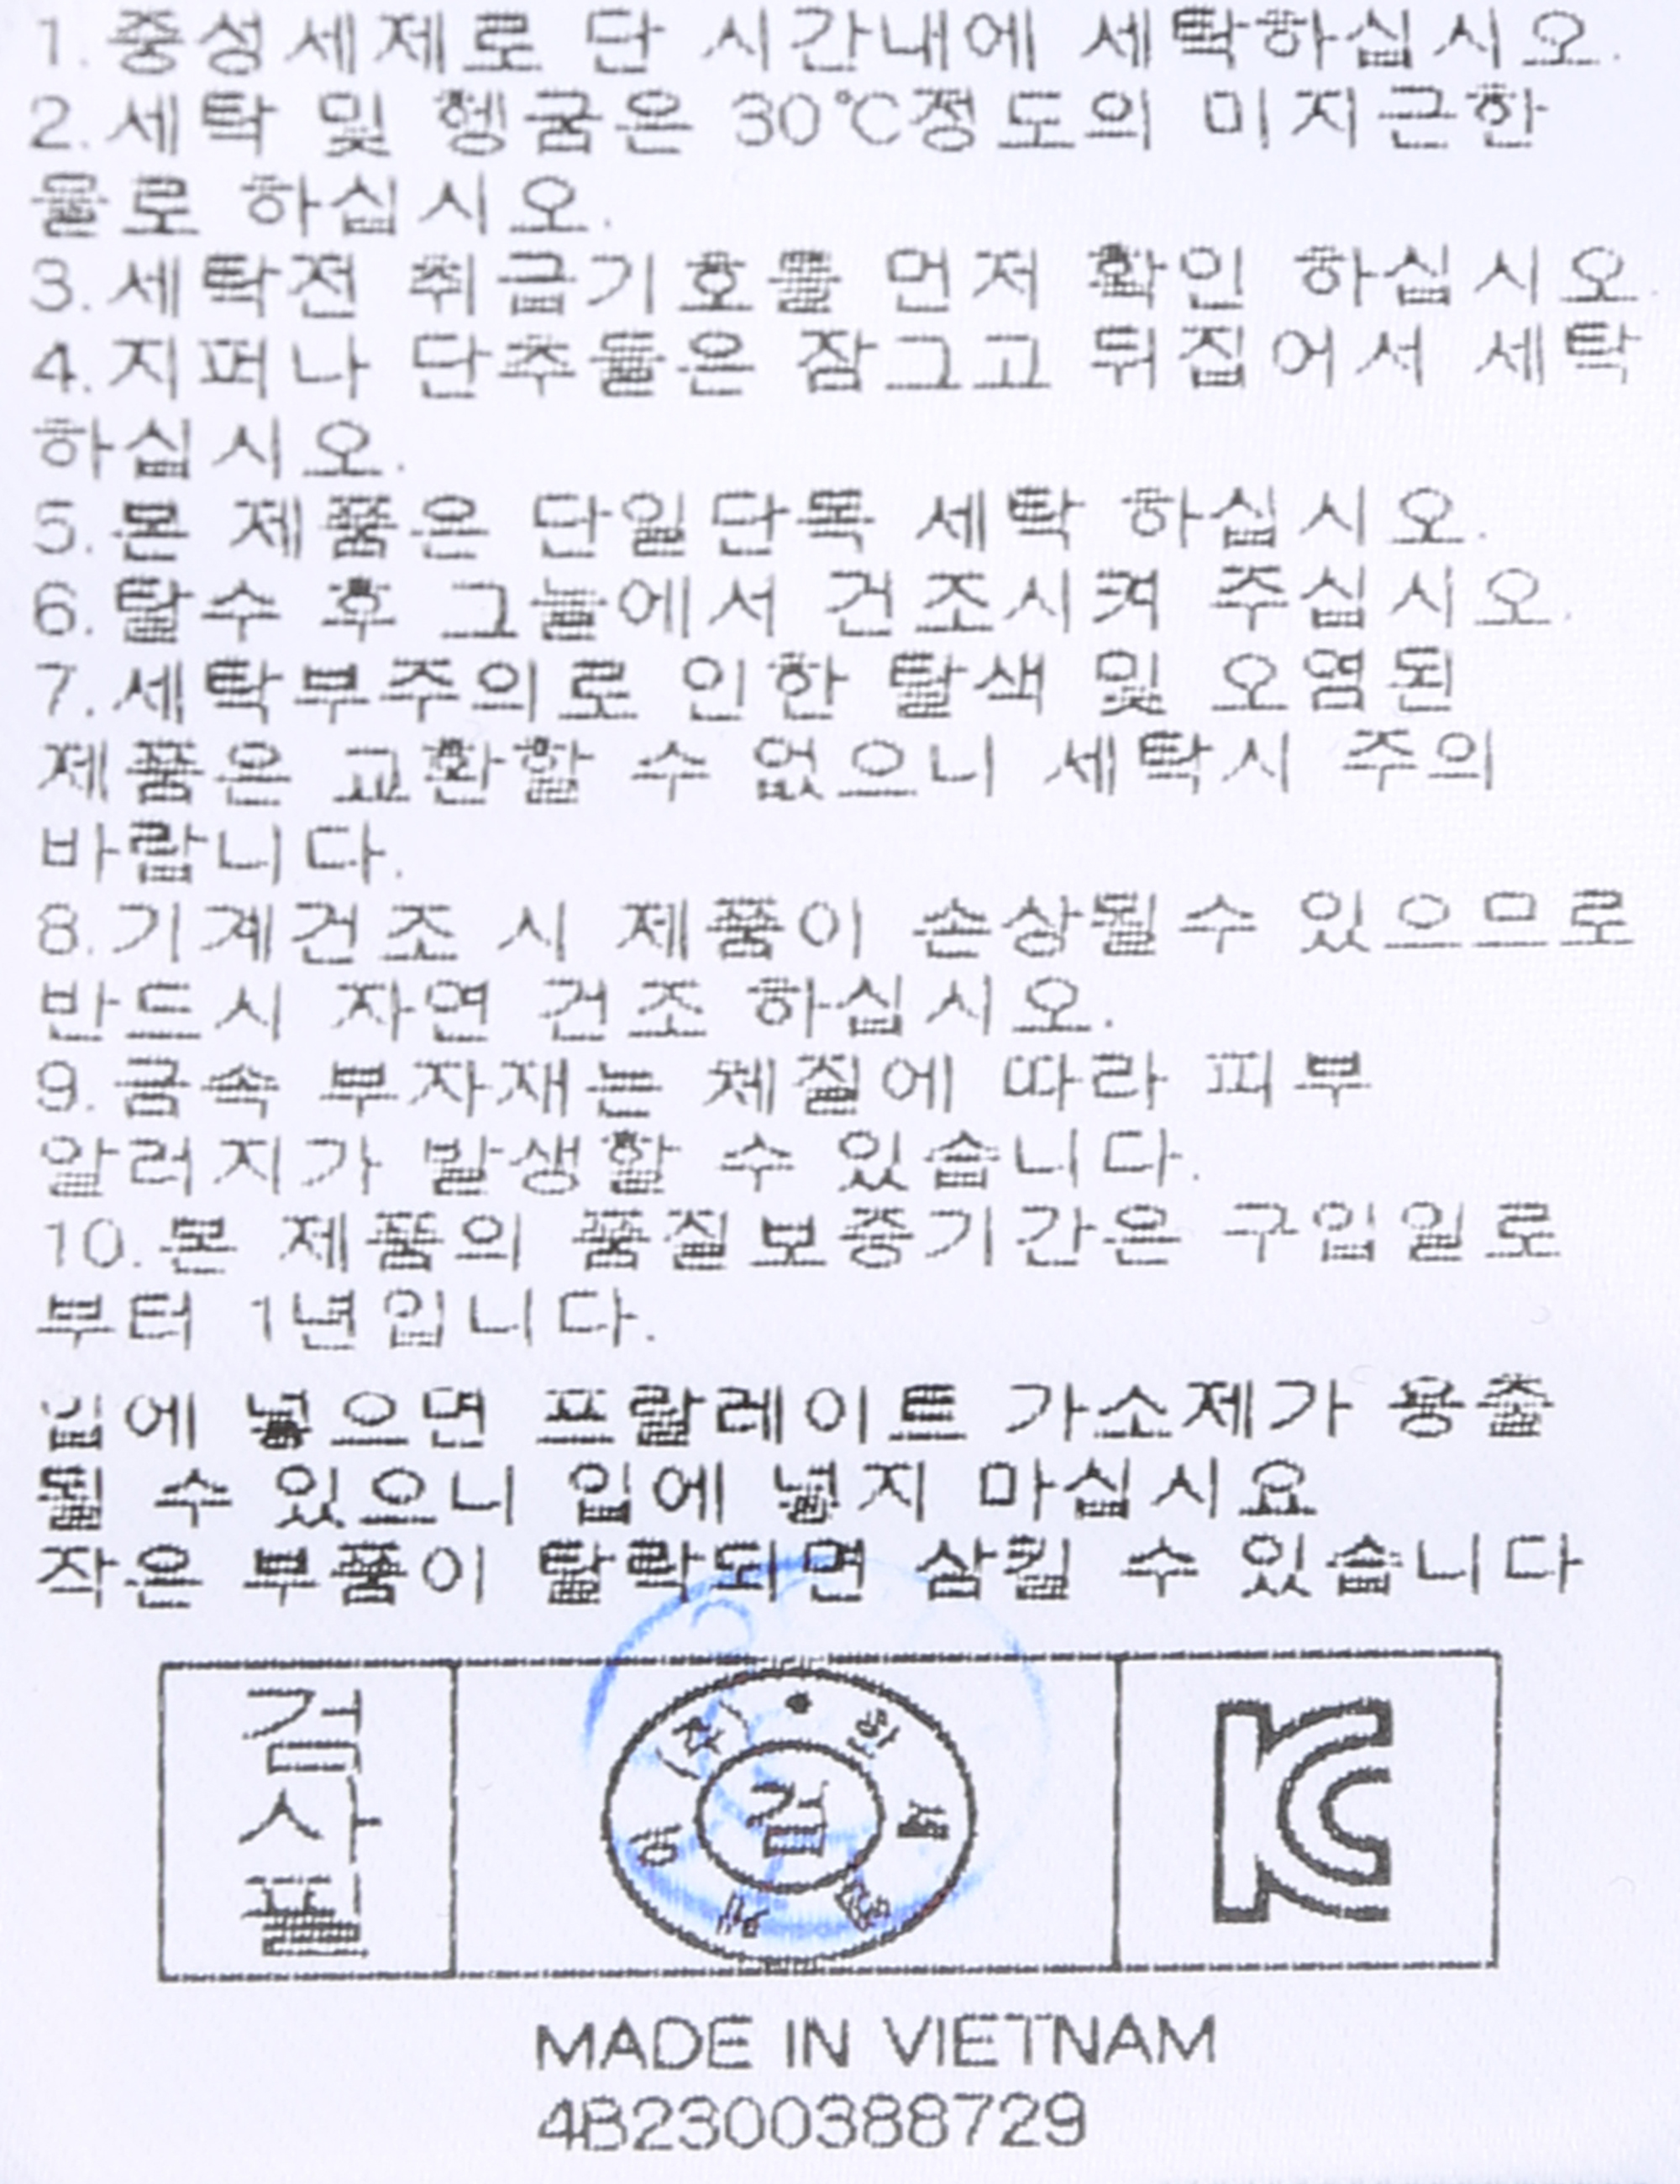 1. 중성세제로 단 시간내에 세탁하십시오.
2. 세탁 및 헹굼은 30℃정도의 미지근한
물로 하십시오.
3. 세탁전 취급기호를 먼저 확인 하십시오.
4. 지퍼나 단추들은 잠그고 뒤집어서 세탁
하십시오.
5. 본 제품은 단일단독 세탁 하십시오.
6. 탈수 후 그늘에서 건조시켜 주십시오.
7. 세탁부주의로 인한 탈색 및 오염된
제품은 교환할 수 없으니 세탁시 주의
바랍니다.
8. 기계건조 시 제품이 손상될수 있으므로
반드시 자연 건조 하십시오.
9. 금속 부자재는 체질에 따라 피부
알러지가 발생할 수 있습니다.
10. 본 제품의 품질보증기간은 구입일로
부터 1년입니다.
입에 넣으면 프탈레이트 가소제가 용출
될 수 있으니 입에 넣지 마십시요
작은 부품이 탈락되면 삼킬 수 있습니다
검사필
검
KC
MADE IN VIETNAM
4B2300388729